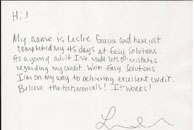 Hi!
My name is Leslie Garcia and have just
completed my 45 days at Easy Solutions.
As a young adult I've made lots of mistakes
regarding my credit. With Easy Solutions
I'm on my way to achieving excellent credit.
Believe the testimonials! It works!